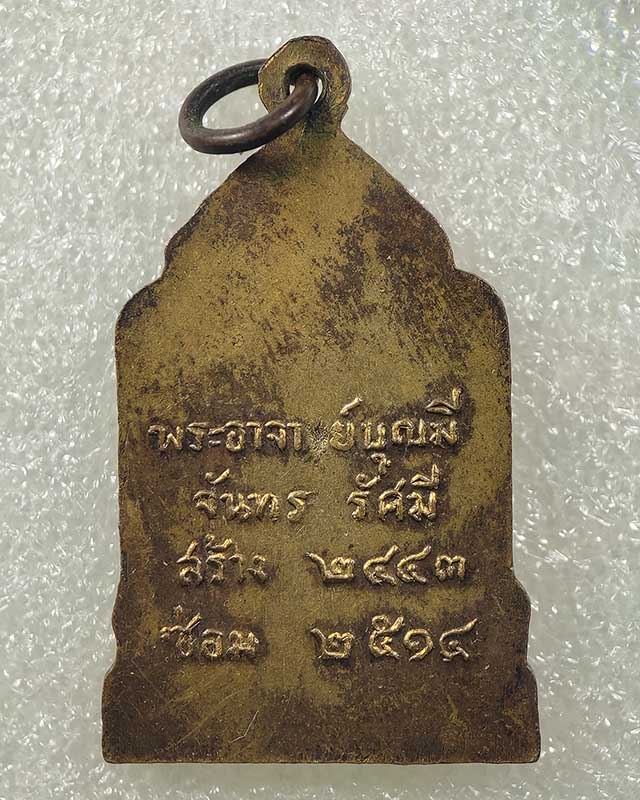 พระอาจา ย์บุญมี
จันทร รัศมี
สร้าง ๒๔๔๓
ซ่อม ๒๕๑๔